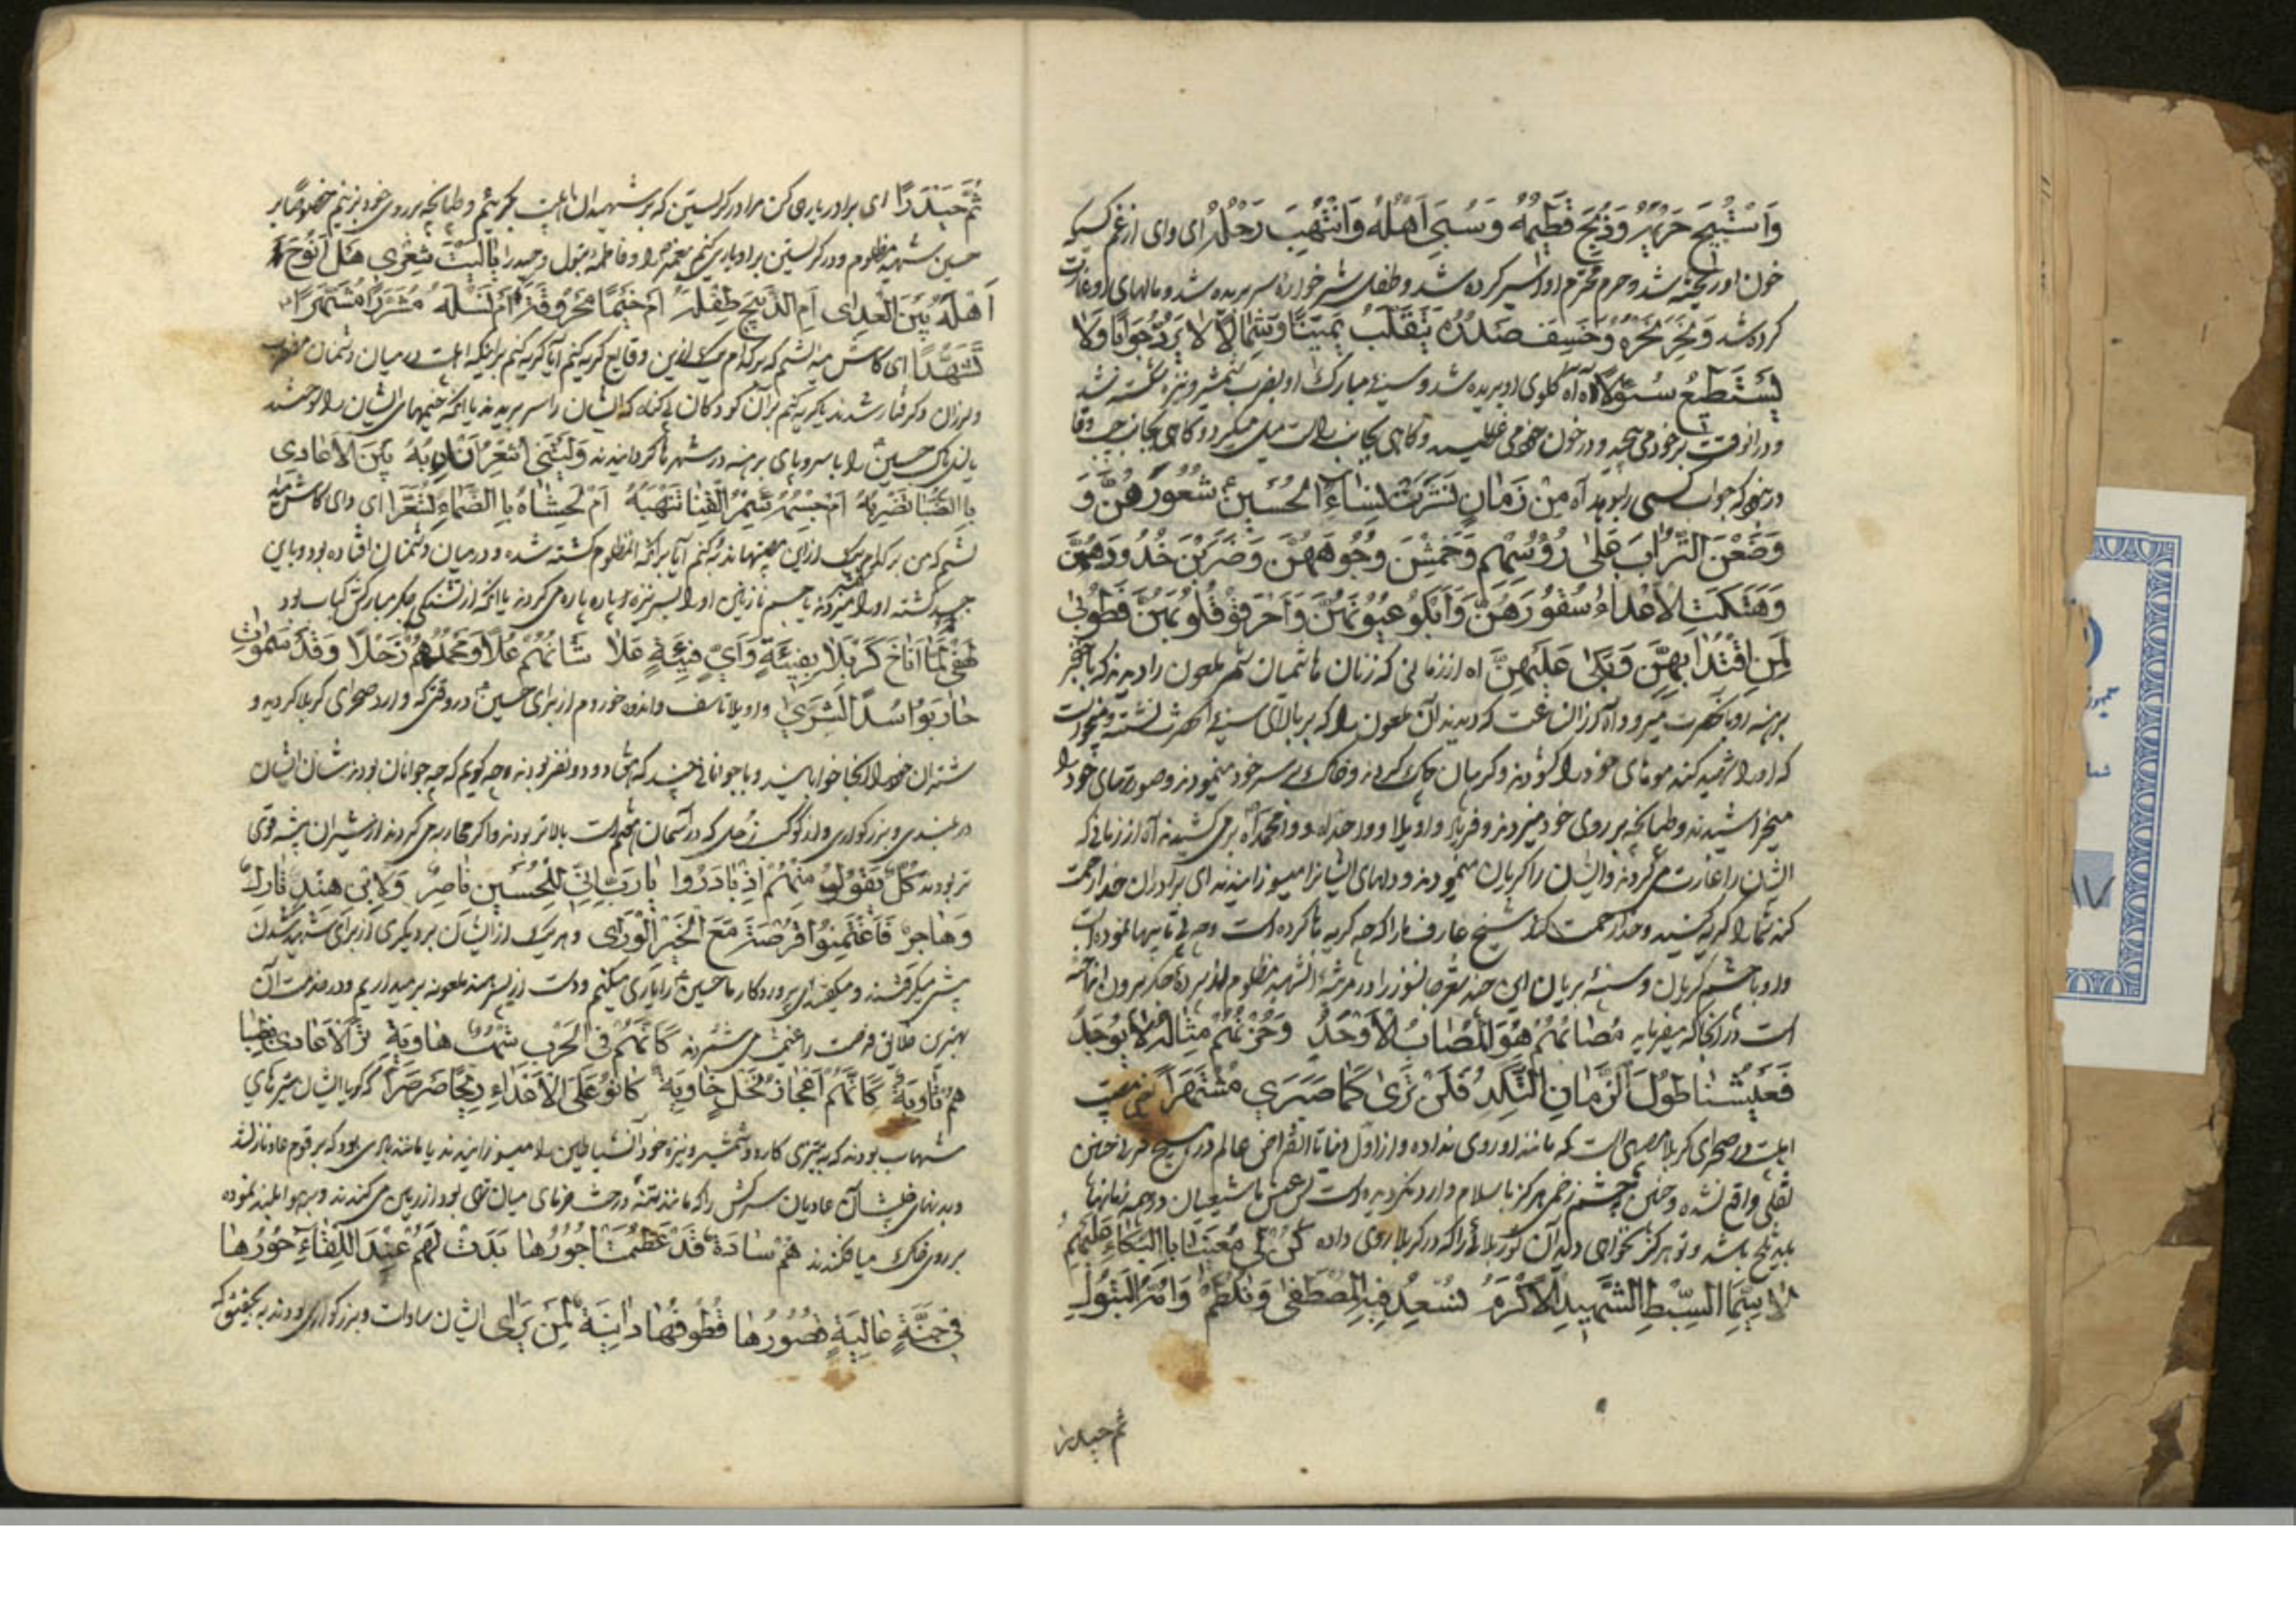 وَاسْتُبِيحَ حَرِيمُهُ وَذُبِحَ فَطِيمُهُ وَسُبِيَ اَهْلُهُ وَانْتُهِبَ رَحْلُهُ ای وای از غم کسیکه
خون او ریخته شد و حرم محترم او اسیر کرده شد و طفل شیر خواره سر بریده شد و مالهای او غارت
کرده شد وَنُحِرَ نَحْرُهُ وَخُسِفَ صَدْرُهُ يَتَقَلَّبُ يَمِينًا وَشِمَالًا لَا يَرُدُّ جَوَابًا وَلَا
يَسْتَطِيعُ سُؤَالًا آه آه گلوی او بریده شد و سینهٔ مبارک او بضرب شمشیر و نیزه شکسته شد
و در آنوقت بر خود می پیچید و در خون خود می غلطید و گاهی بجانب راست میل میکرد و گاهی بجانب چپ
که جواب کسی را بدهد آه مِنْ زَمَانٍ نَشَرَتْ نِسَاءُ الْحُسَيْنِ شُعُورَهُنَّ وَ
وَضَعْنَ التُّرَابَ عَلَى رُؤُسِهِمْ وَخَمَشْنَ وُجُوهَهُنَّ وَضَرَبْنَ خُدُودَهُنَّ
وَهَتَكَتِ الْأَعْدَاءُ سُتُورَهُنَّ وَاَبْكَوْ عُيُونَهُنَّ وَاَحْرَقُوْ قُلُوبَهُنَّ فَطُوبَى
لِمَنِ اقْتَدَا بِهِنَّ وَبَكَى عَلَيْهِنَّ اه از زمانی که زنان هاشمیان شمر ملعون را دیدند که با خنجر
برهنه رو بآنحضرت میرود آه از آن ساعت که دیدند آن ملعون را که بر بالای سینهٔ آنحضرت نشسته و میخواست
که او را شهید کند موهای خود را گشودند و گریبان چاک کردند و خاک بر سر خود مینمودند و صورتهای خود را
میخراشیدند و طپانچه بر روی خود میزدند و فریاد واویلا و واجداه و وامحمداه بر می کشیدند آه از زمانی که
ایشان را غارت می کردند و ایشان را گریان مینمودند و دلهای ایشانرا میسوزانیدند ای برادران خدا رحمت
کند شما را گریه کنید و خدا رحمت کند شیخ عارف ما را که چه گریه ها کرده است
و او با چشم گریان و سینهٔ بریان این چند شعر جانسوز را در مرثیهٔ آن شهید مظلوم از پردهٔ جگر بیرون انداخته
است در آنجا که میفرماید مُصَابُهُمْ هُوَ الْمُصَابُ الْأَوْحَدُ وَحُزْنُهُمْ مِثَالُهُ لَا يُوجَدُ
فَعَيْشُنَا طُولَ الزَّمَانِ اَنْكَدُ فَلَنْ تَرَى كَمَا جَرَى مُشْتَهَرًا یعنی مصیبت
اهلبیت در صحرای کربلا مصیبتی است که مانند او روی نداده و از اول دنیا تا انقراض عالم در هیچ قرنی چنین
واقع نشده و چنین چشم زخمی هرگز باسلام وارد نگردیده است پس عیش ما شیعیان در همه زمانها
باید تلخ باشد و تو هرگز نخواهی دید آن کرب و بلائی را که در کربلا روی داده كُنْ لِي مُعِينًا بِالْبُكَاءِ عَلَيْهِمُ
لَا سِيَّمَا السِّبْطِ الشَّهِيدِ الْأَكْرَمِ نُسْعِدُ فِيهِ الْمُصْطَفَى وَنَلْطِمُ وَامُّهُ الْبَتُولِ
ثم حیدرا
ثُمَّ حَيْدَرًا ای برادر یاری کن مرا در گریستن که بر شهیدان اهلبیت بگرییم و طپانچه بر روی خود بزنیم خصوصا بر
حسین شهید مظلوم و در گریستن بر او یاری کنیم پیغمبر را و فاطمه بتول و حیدر را يَا لَيْتَ شِعْرِي هَلْ اَنُوحُ
اَهْلَهُ بَيْنَ الْعِدَى اَمِ الذَّبِيحَ طِفْلَهُ اَمْ خِيَمًا مَحْرُوقَةً اَمْ نَسْلَهُ مُشَرَّدًا مُشَهَّرًا
ای کاش میدانستم که بر کدام یک ازین وقایع گریه کنم آیا گریه کنم بر اینکه اهلبیت در میان دشمنان
و لرزان و گرفتار شدند یا گریه کنم بر آن کودکان بی گناه که ایشان را سر بریدند یا آنکه خیمهای ایشان را سوختند
حسین را با سر و پای برهنه در شهرها گردانیدند وَلَيْتَنِي اَشْعُرُ اَنْدُبُهُ بَيْنَ الْأَعَادِي
بِالظُّبَا تَضْرِبُهُ اَمْ جِسْمُهُ سُمْرُ الْقَنَا تَنْهَبُهُ اَمْ لِحَشَاهُ بِالظَّمَاءِ تَسَعَّرَا ای وای کاش
که من بر کدام یک از این مصیبتها ندبه کنم آیا بر آنکه آن مظلوم کشته شده و در میان دشمنان افتاده بود
یا جسم نازنین او را بسر نیزه پاره پاره می کردند یا آنکه از تشنگی جگر مبارکش کباب بود
لَهْفِي لَمَّا اَنَاخَ كَرْبَلَا بِفِتْيَةٍ وَاَيِّ فِتْيَةٍ عَلَا شَانُهُمْ عُلًا وَمَجْدُهُمْ زُحَلًا وَقَدْ سَمَوْا
حَارَبُوا اُسْدَ الشَّرَى واویلا تاسف و اندوه خوردم از برای حسین در وقتی که وارد صحرای کربلا گردید و
شتران خود را در آنجا خوابانید و با جوانانی چند که هفتاد و دو نفر بودند چه گویم که چه جوانان بودند شان ایشان
در بلندی و بزرگواری از کوکب زحل که در آسمان هفتم است بالاتر بودند و اگر محاربه می کردند از شیران بیشه قوی
تر بودند كُلٌّ يَقُولُ مِنْهُمْ اِذْ بَادَرُوا يَا رَبِّ اِنِّي لِلْحُسَيْنِ نَاصِرٌ وَلِابْنِ هِنْدٍ تَارِكٌ
وَهَاجِرٌ فَاغْتَنِمُوا فُرْصَةً مَعَ الْخَيْرِ الْوَرَى و هر یک از ایشان بر دیگری از برای شهید شدن
پیش میگرفتند و میگفتند ای پروردگار ما حسین را یاری میکنیم و دست از پسر هند ملعونه بر میداریم و در خدمت آن
بهترین خلایق فرصت را غنیمت می شمریم كَأَنَّهُمْ فِي الْحَرْبِ شُهْبٌ هَاوِيَةٌ
كَأَنَّهُمْ اَعْجَازُ نَخْلٍ خَاوِيَةٍ كَانُوْ عَلَى الْأَعْدَاءِ رِيحًا صَرْصَرًا که گویا ایشان تیرهای
شهاب بودند که به تیزی کارد و شمشیر و نیزهٔ خود آن شیاطین را میسوزانیدند یا مانند بادی بود که بر قوم عاد نازل شد
و بدنهای عادیان سرکش را که مانند تنهٔ درخت خرمای میان تهی بود از زمین می کندند و بهوا بلند نموده
بر روی خاک میافکندند هُمْ سَادَةٌ قَدْ عَظُمَتْ اُجُورُهَا بَدَتْ لَهُمْ عِنْدَ اللِّقَاءِ حُورُهَا
فِي جَنَّةٍ عَالِيَةٍ قُصُورُهَا قُطُوفُهَا دَانِيَةٌ لِمَنْ يَرَى ایشان سادات و بزرگواری بودند به تحقیق که